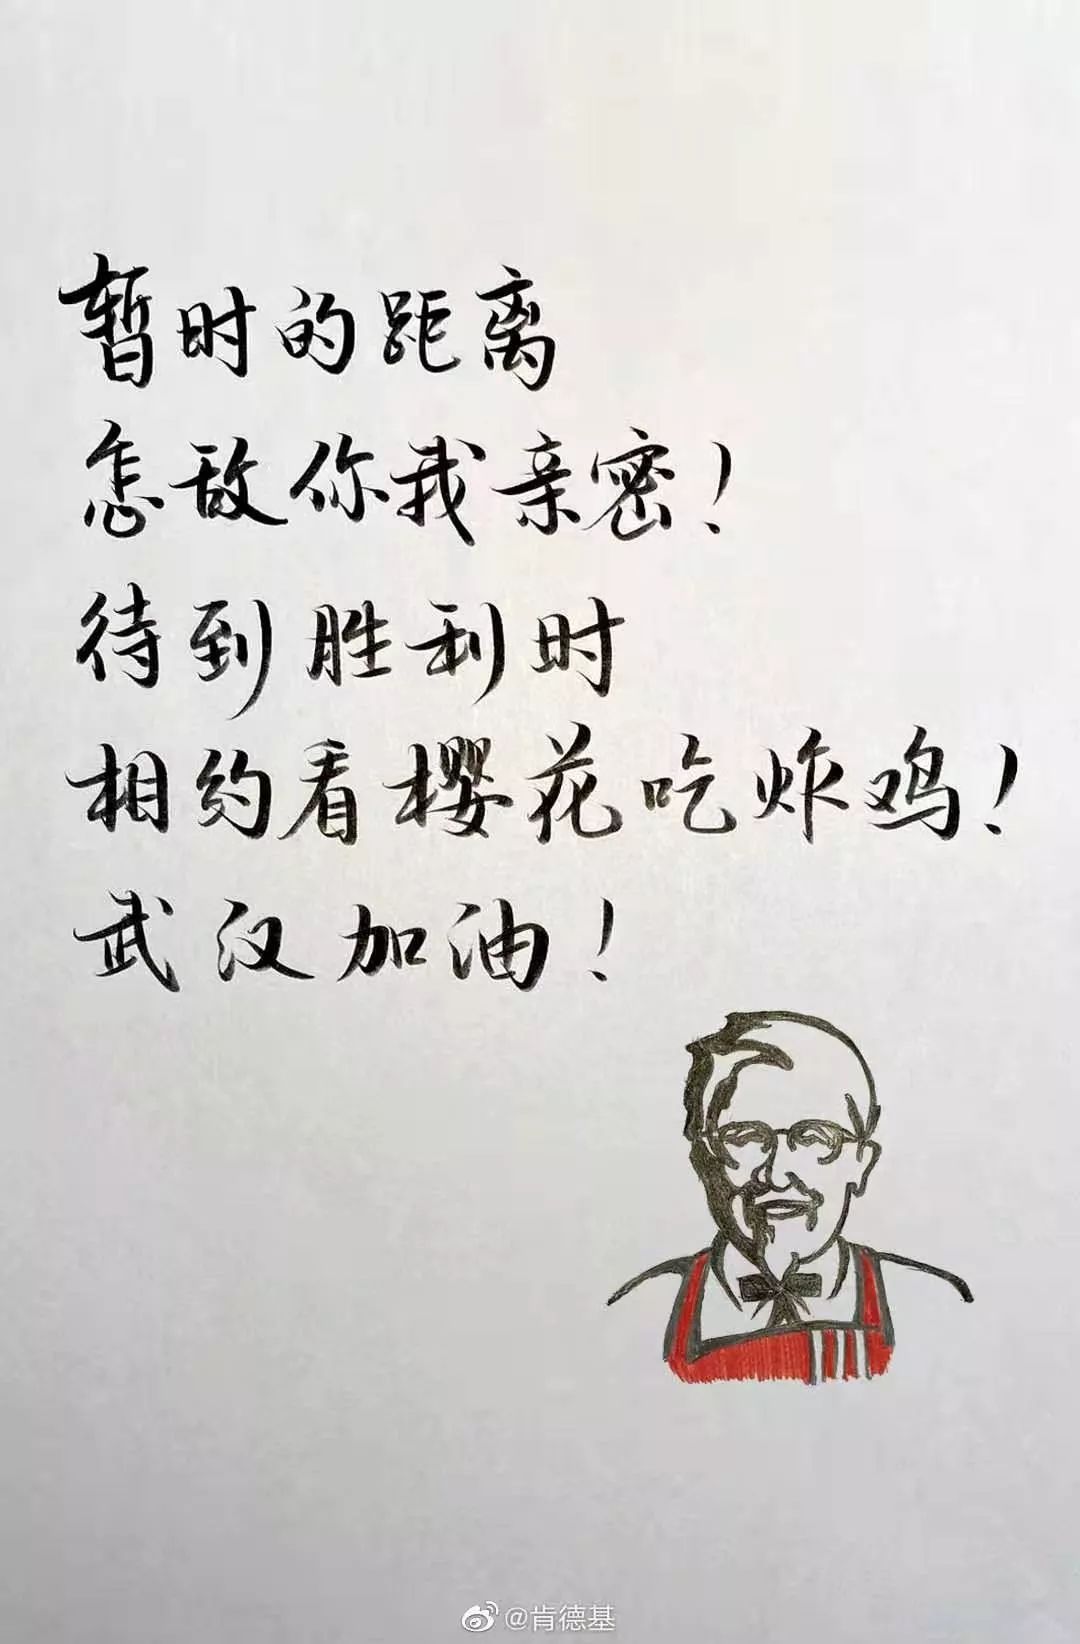 暂时的距离
怎敌你我亲密！
待到胜利时
相约看樱花吃炸鸡！
武汉加油！
@肯德基